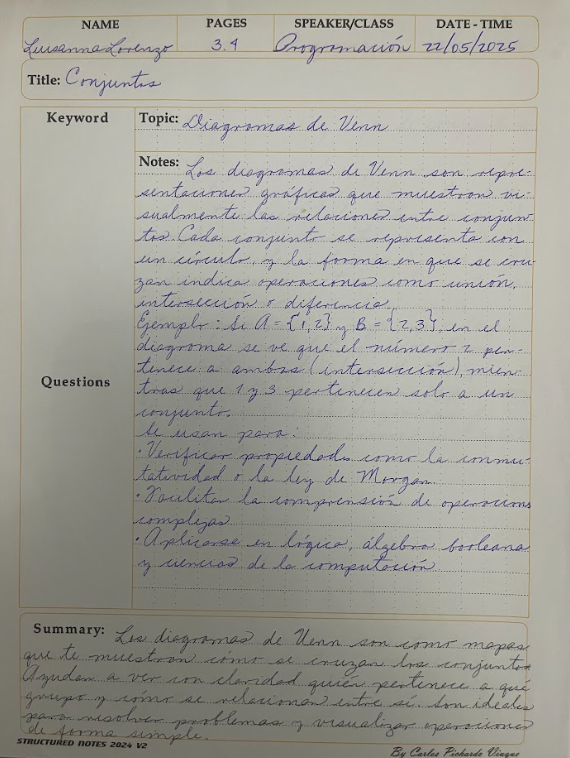 NAME PAGES SPEAKER/CLASS DATE - TIME
Luisanna Lorenzo 3.4 Programación 22/05/2025
Title: Conjuntos
Keyword
Topic: Diagramas de Venn
Notes: Los diagramas de Venn son repre-
sentaciones gráficas que muestran vi-
sualmente las relaciones entre conjun-
tos. Cada conjunto se representa con
un círculo, y la forma en que se cru-
zan indica operaciones como unión,
intersección o diferencia.
Ejemplo: Si A = {1,2} y B = {2,3}, en el
diagrama se ve que el número 2 per-
tenece a ambos (intersección), mien-
Questions
tras que 1 y 3 pertenecen solo a un
conjunto.
Se usan para:
· Verificar propiedades como la conmu-
tatividad o la ley de Morgan.
· Facilita la comprensión de operaciones
complejas
· Aplicarse en lógica, álgebra booleana
y ciencias de la computación
Summary: Los diagramas de Venn son como mapas
que te muestran cómo se cruzan los conjuntos
Ayudan a ver con claridad quién pertenece a qué
grupo y cómo se relacionan entre sí. Son ideales
para resolver problemas y visualizar operaciones
de forma simple.
STRUCTURED NOTES 2024 V2
By Carlos Pichardo Vicque